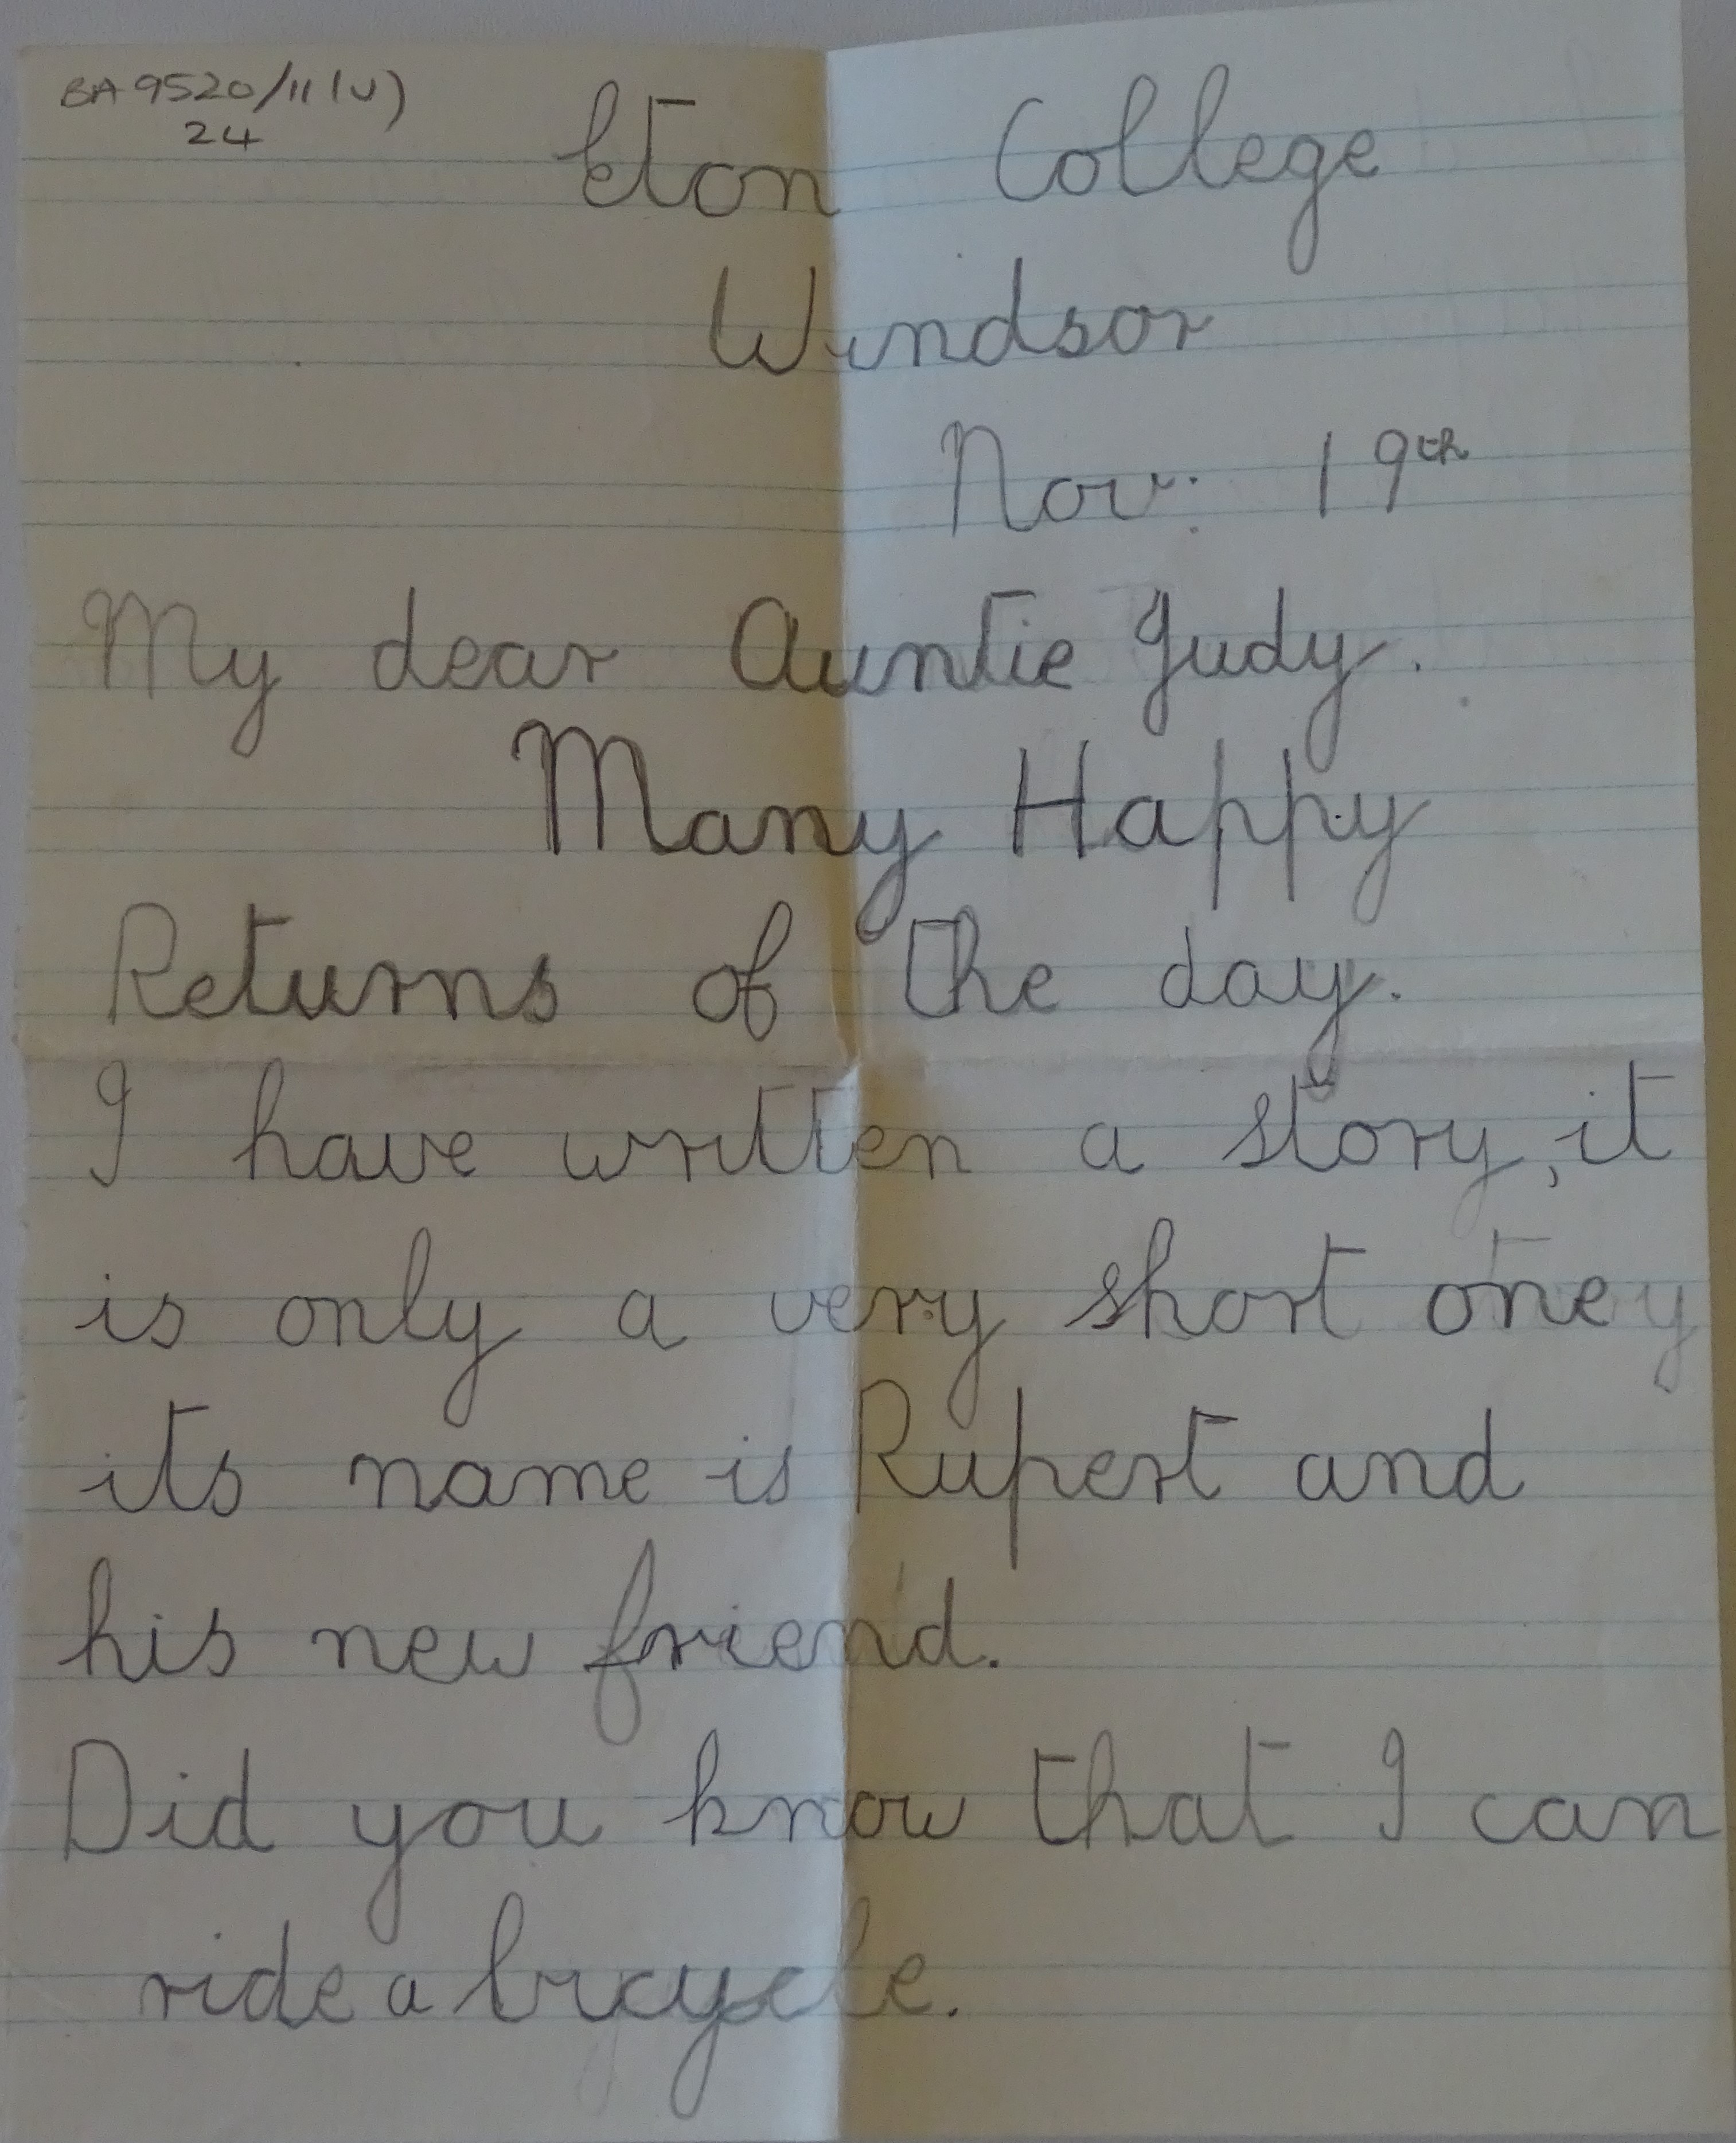 BA 9520/11(v)
24
Eton College
Windsor
Nov: 19th
My dear Auntie Judy.
Many Happy
Returns of the day.
I have written a story, it
is only a very short one
its name is Rupert and
his new friend.
Did you know that I can
ride a bicycle.